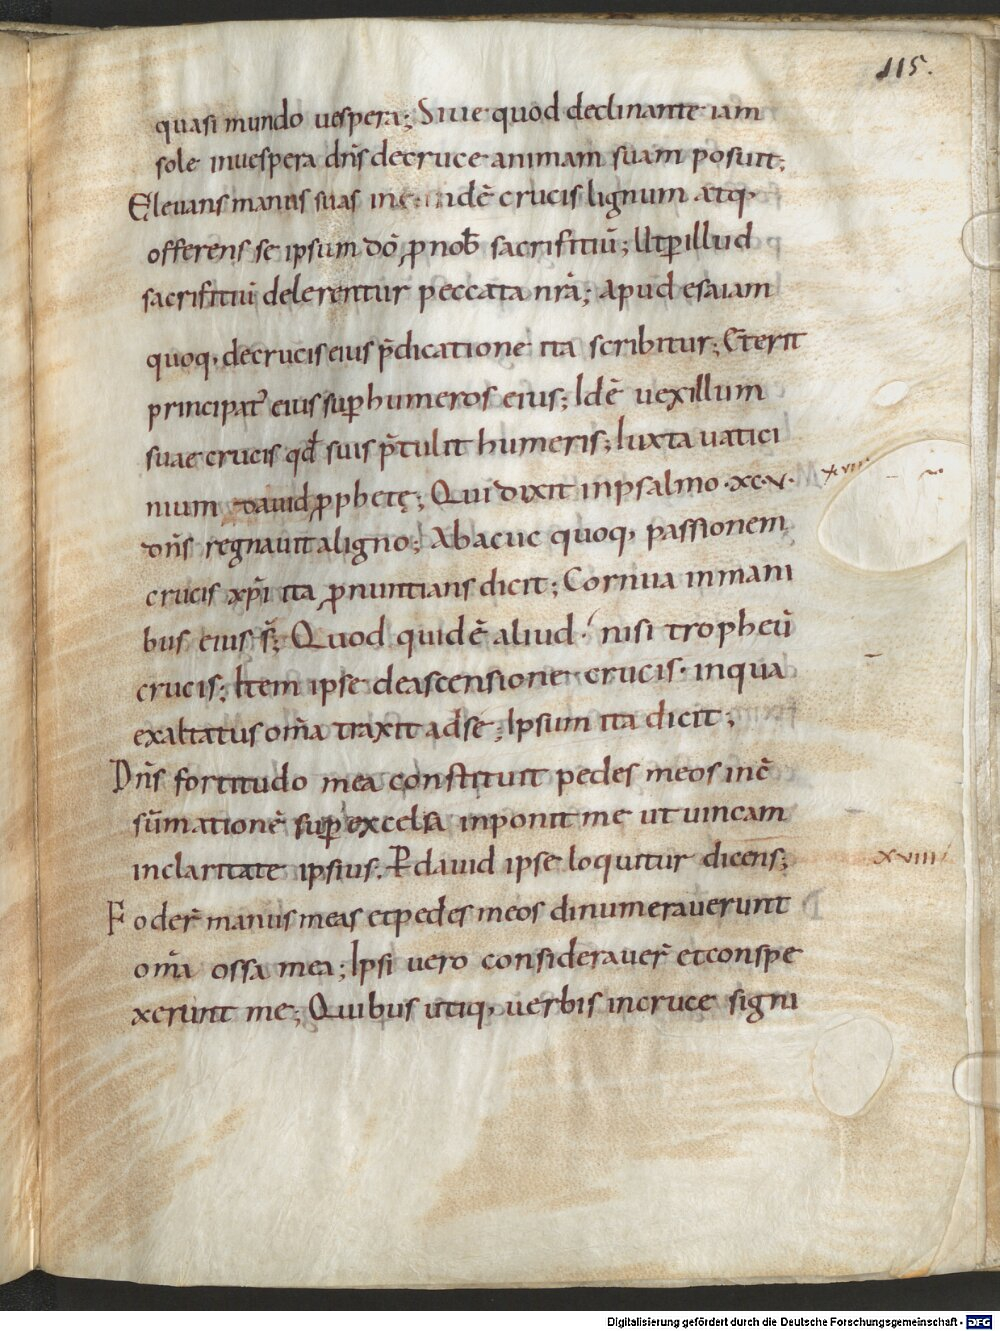 115.
quasi mundo uespera; Siue quod declinante iam
sole inuespera dn̄s decruce animam suam posuit;
Eleuans manus suas indē crucis lignum atq;
offerens se ipsum dō, ꝓ nob̄ sacrifitiū; Ut ꝑ illud
sacrifitiū delerentur peccata nr̄a; Apud esaiam
quoq; decrucis eius p̄dicatione ita scribitur; Et erit
principat᾽ eius suꝑ humeros eius; Idē uexillum
suae crucis qd̄ suis p̄tulit humeris; Iuxta uatici
nium dauid ꝓphetę; Qui dixit inpsalmo ·xc·v· xcviii
dn̄s regnauit aligno; Abacuc quoq; passionem
crucis xp̄i ita ꝓnuntians dicit; Cornua inmani
bus eius s̄; Quod quidē aliud · nisi tropheū
crucis; Item ipse deascensione crucis · inqua
exaltatus om̄a traxit adse; Ipsum ita dicit;
Dn̄s fortitudo mea constituit pedes meos incō
sūmationē suꝑ excelsa inponit me ut uincam
inclaritate ipsius. P̄ dauid ipse loquitur dicens; xviiii
Foder̄ manus meas et pedes meos dinumerauerunt
om̄a ossa mea; Ipsi uero considerauer̄ et conspe
xerunt me; Quibus utiq; uerbis incruce signi
Digitalisierung gefördert durch die Deutsche Forschungsgemeinschaft - DFG